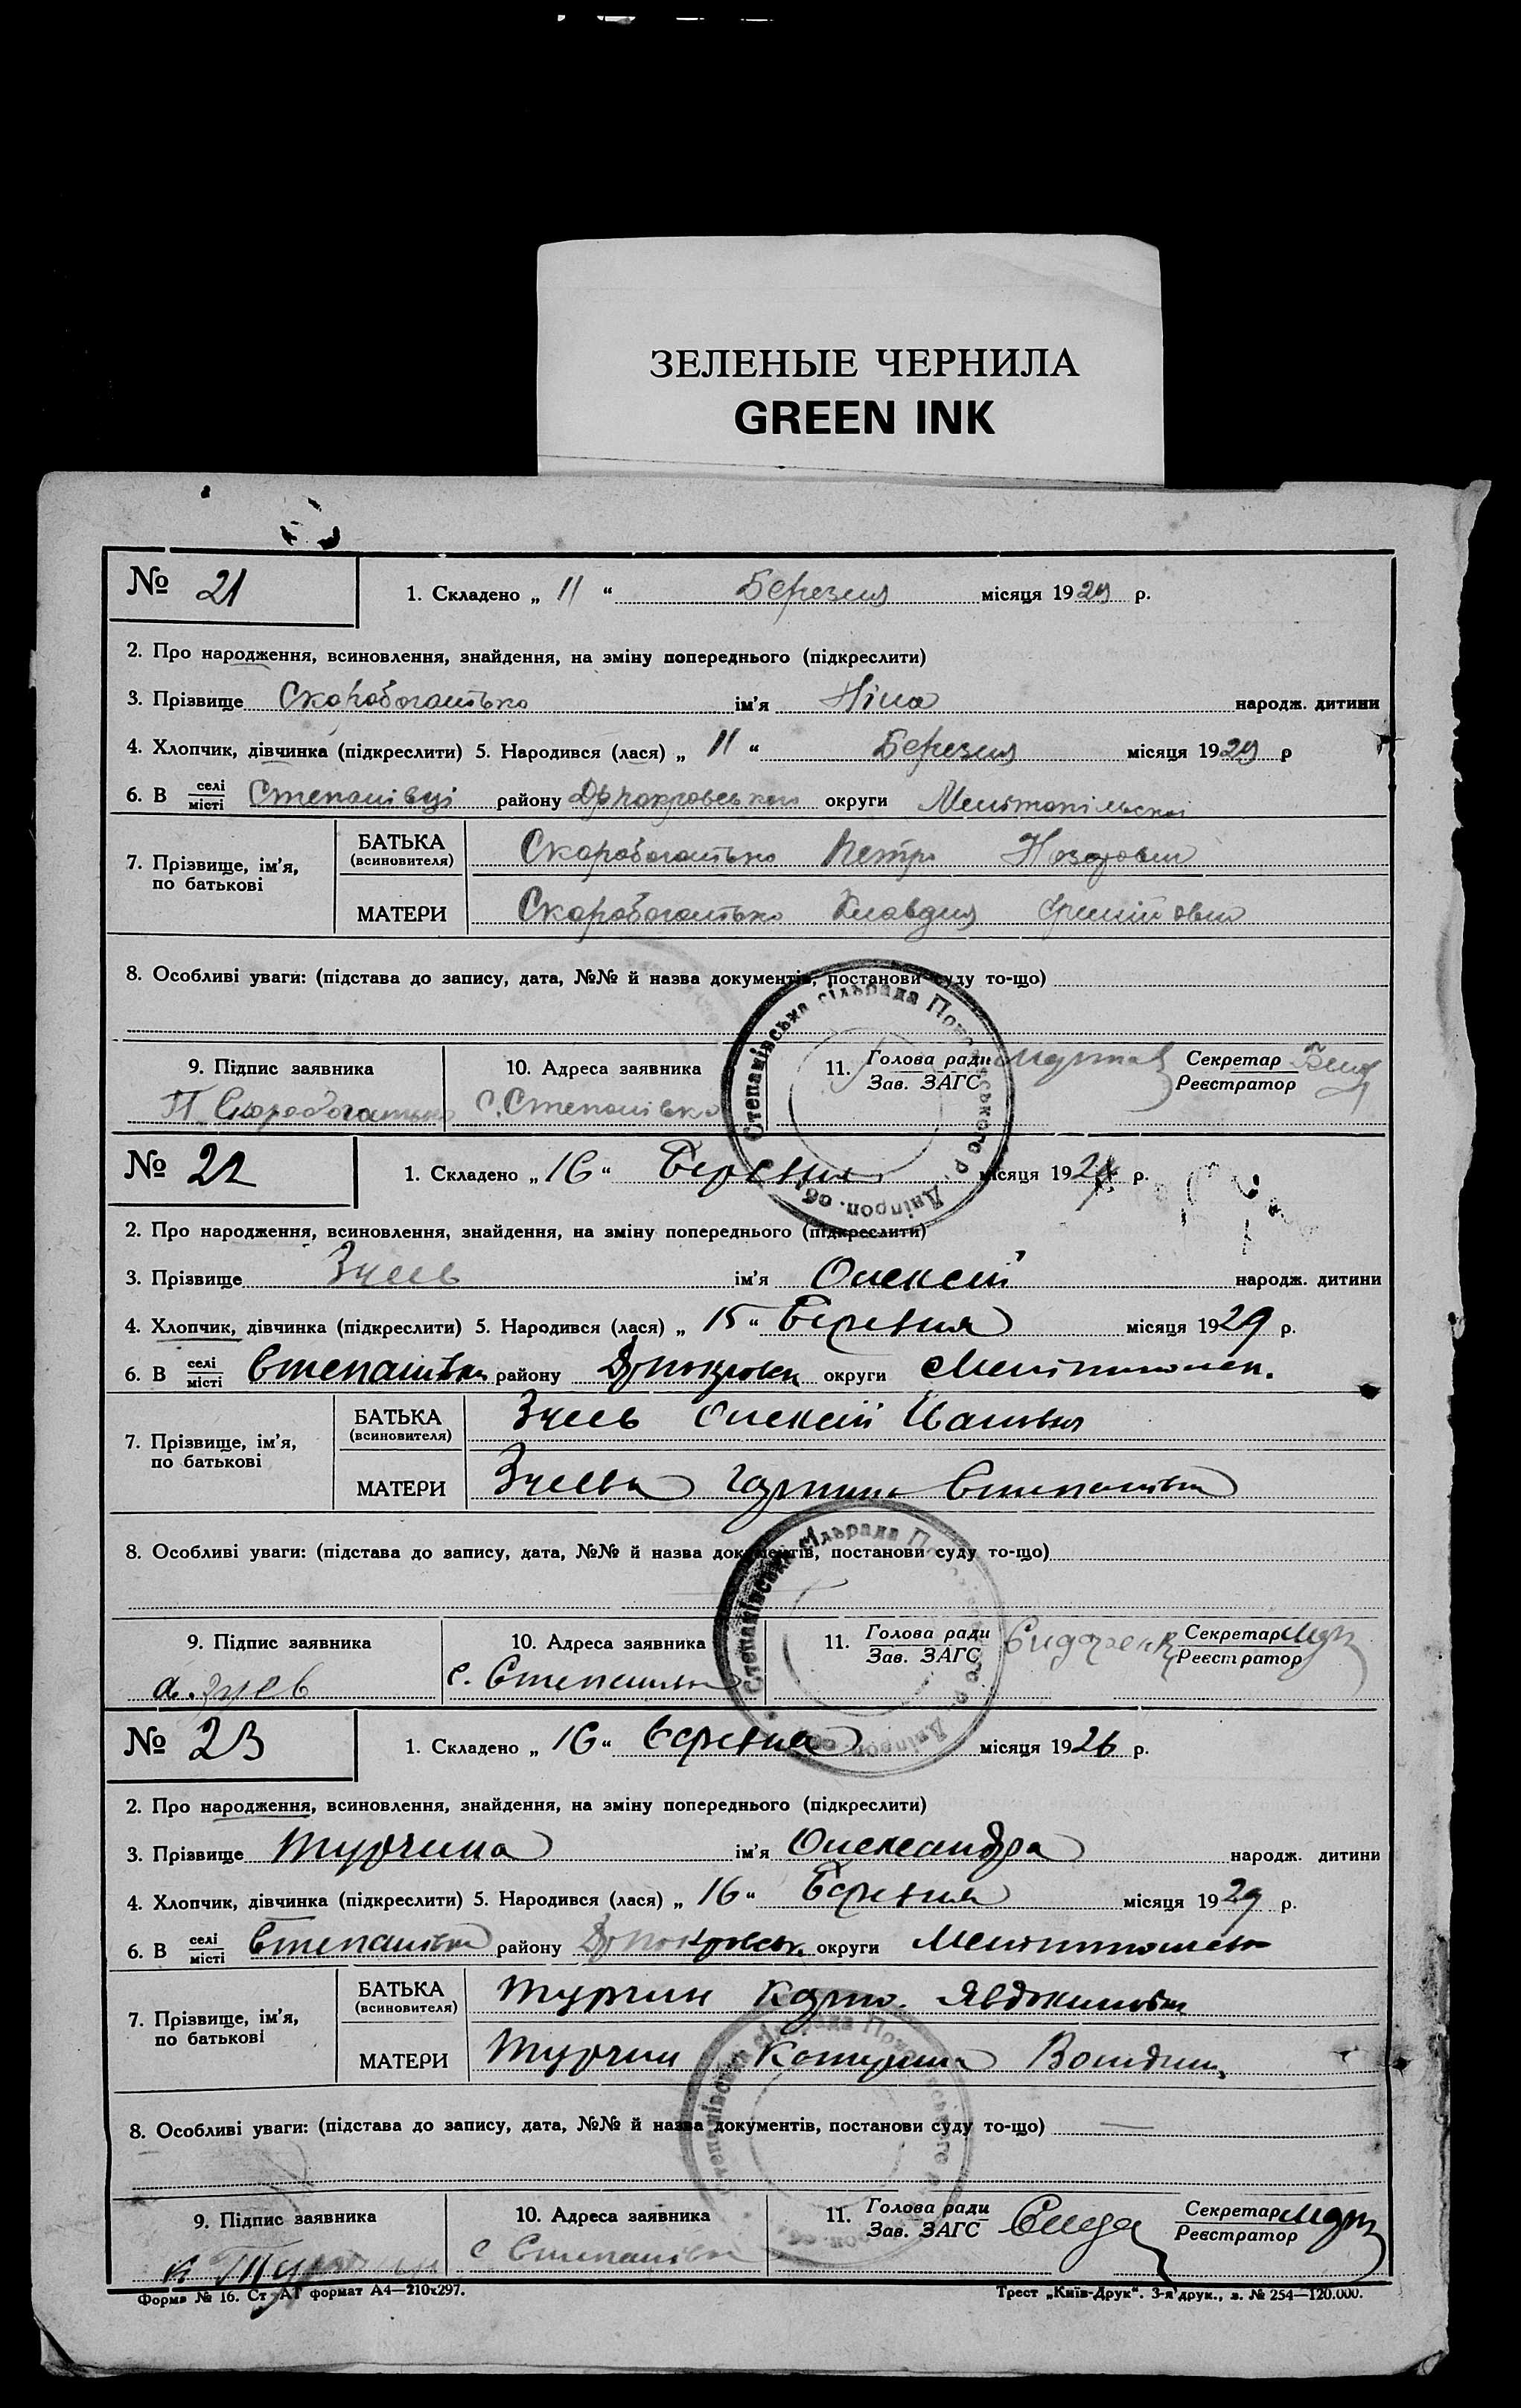 ЗЕЛЕНЫЕ ЧЕРНИЛА
GREEN INK
№ 21
1. Складено „ 11 “ Березня місяця 1929 р.
2. Про народження, всиновлення, знайдення, на зміну попереднього (підкреслити)
3. Прізвище Скоробогатько ім'я Ніна народж. дитини
4. Хлопчик, дівчинка (підкреслити) 5. Народився (лася) „ 11 “ Березня місяця 1929 р
6. В селі місті Степанівці району округи Мелітопільскої
7. Прізвище, ім'я, по батькові
БАТЬКА (всиновителя) Скоробогатько Петро
МАТЕРИ Скоробогатько Клавдия
8. Особливі уваги: (підстава до запису, дата, №№ й назва документів, постанови суду то-що)
Степанівська сільрада Покровського р. Дніпроп. обл.
9. Підпис заявника 10. Адреса заявника 11. Голова ради Зав. ЗАГС Секретар Реєстратор
П. Скоробогатько с. Степанівка
№ 22
1. Складено „ 16 “ Березня місяця 192 р.
2. Про народження, всиновлення, знайдення, на зміну попереднього (підкреслити)
3. Прізвище Зуев ім'я Олексій народж. дитини
4. Хлопчик, дівчинка (підкреслити) 5. Народився (лася) „ 15 “ Березня місяця 1929 р.
6. В селі місті Степанівка району округи
7. Прізвище, ім'я, по батькові
БАТЬКА (всиновителя) Зуев Олексій Іванович
МАТЕРИ Зуева Степанівна
8. Особливі уваги: (підстава до запису, дата, №№ й назва документів, постанови суду то-що)
Степанівська сільрада Покровського р. Дніпроп. обл.
9. Підпис заявника 10. Адреса заявника 11. Голова ради Зав. ЗАГС Секретар Реєстратор
а. зуев с. Степанівка
№ 23
1. Складено „ 16 “ березня місяця 1926 р.
2. Про народження, всиновлення, знайдення, на зміну попереднього (підкреслити)
3. Прізвище Турчина ім'я Олександра народж. дитини
4. Хлопчик, дівчинка (підкреслити) 5. Народився (лася) „ 16 “ Березня місяця 1929 р.
6. В селі місті Степанівка району округи
7. Прізвище, ім'я, по батькові
БАТЬКА (всиновителя) Турчин Карпо
МАТЕРИ Турчин Катерина
8. Особливі уваги: (підстава до запису, дата, №№ й назва документів, постанови суду то-що)
Степанівська сільрада Покровського р.
9. Підпис заявника 10. Адреса заявника 11. Голова ради Зав. ЗАГС Секретар Реєстратор
к Турчин с Степанівка
Форма № 16. Ст АГ формат А4—210x297. Трест „Київ-Друк“. 3-я друк., з. № 254—120.000.